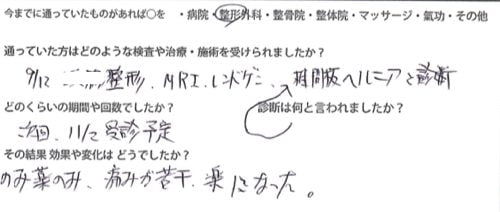 今までに通っていたものがあれば○を ・病院・整形外科・整骨院・整体院・マッサージ・氣功・その他
通っていた方はどのような検査や治療・施術を受けられましたか？
9/12 整形、MRI、レントゲン、椎間板ヘルニアと診断
どのくらいの期間や回数でしたか？ 診断は何と言われましたか？
次回、11/2 受診予定
その結果 効果や変化は どうでしたか？
のみ薬のみ、痛みが若干、楽になった。